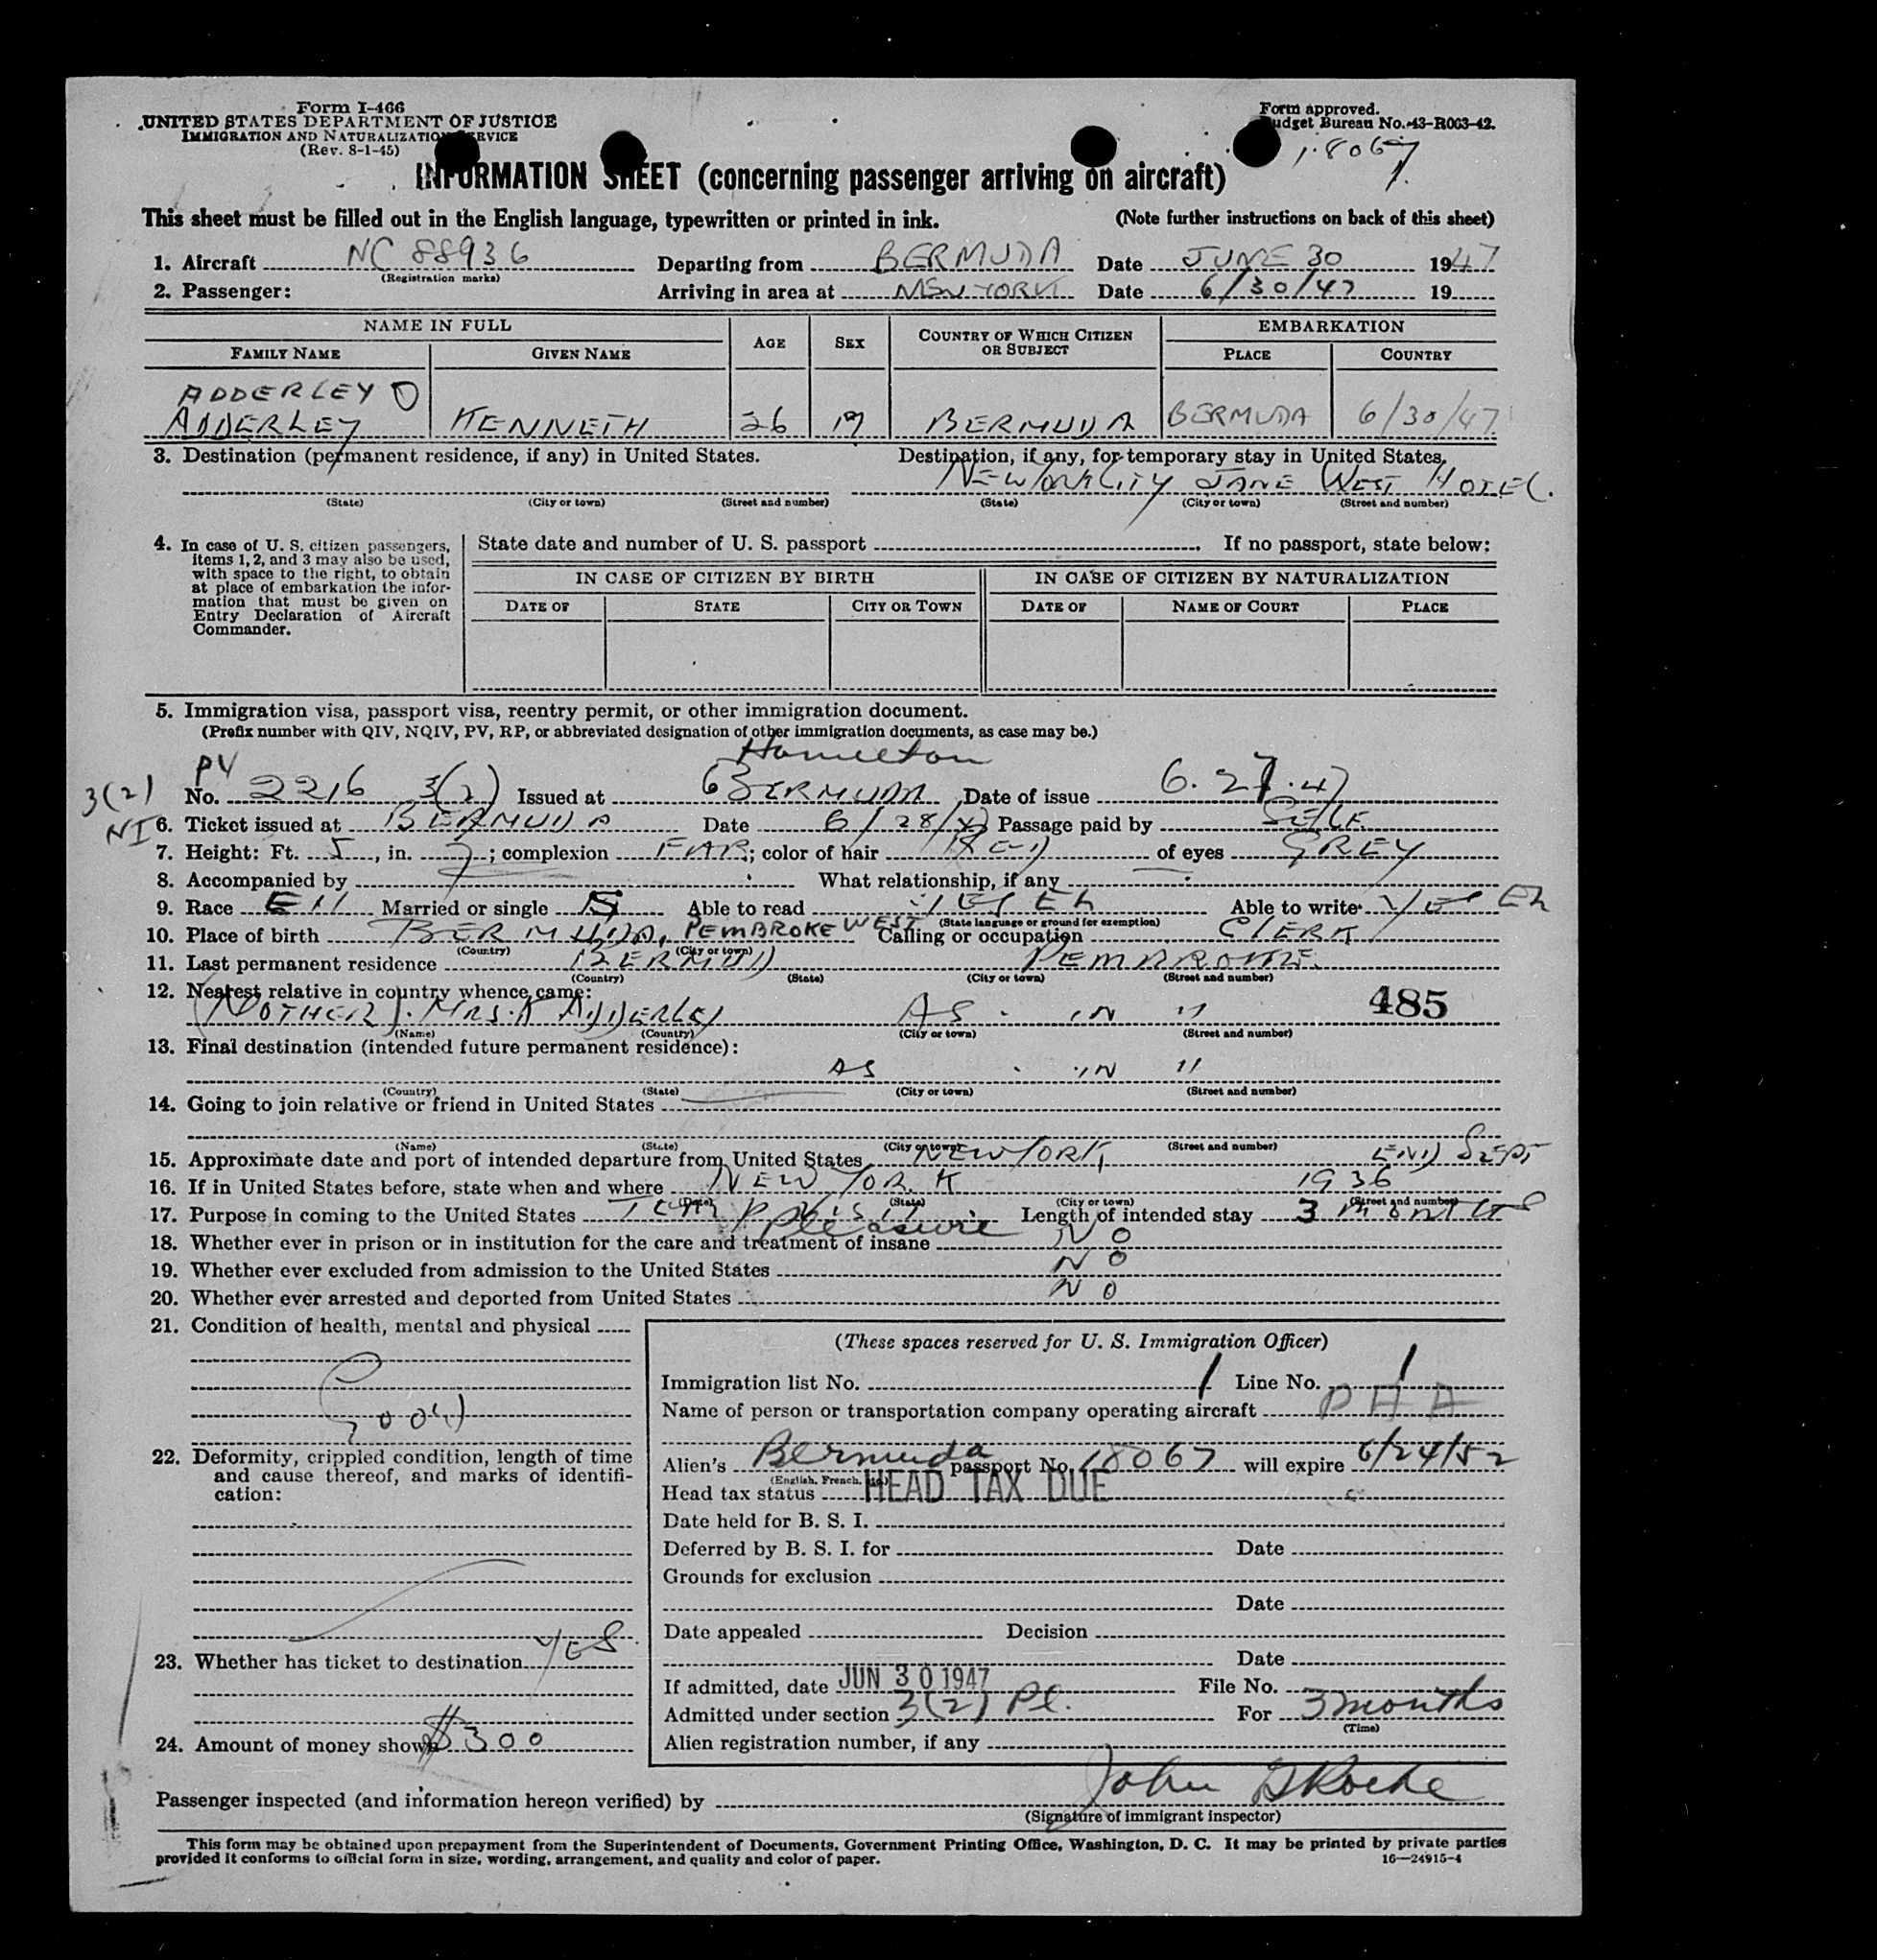 Form I-466
UNITED STATES DEPARTMENT OF JUSTICE
IMMIGRATION AND NATURALIZATION SERVICE
(Rev. 8-1-45)
Form approved.
Budget Bureau No. 43-R063-42.
18067
INFORMATION SHEET (concerning passenger arriving on aircraft)
This sheet must be filled out in the English language, typewritten or printed in ink. (Note further instructions on back of this sheet)
1. Aircraft NC 88936 Departing from BERMUDA Date JUNE 30 1947
(Registration marks)
2. Passenger: Arriving in area at NEW YORK Date 6/30/47 19
NAME IN FULL
FAMILY NAME GIVEN NAME AGE SEX COUNTRY OF WHICH CITIZEN OR SUBJECT EMBARKATION PLACE COUNTRY
ADDERLEY
ADDERLEY KENNETH 26 M BERMUDA BERMUDA 6/30/47
3. Destination (permanent residence, if any) in United States. Destination, if any, for temporary stay in United States.
NEW YORK CITY JANE WEST HOTEL.
(State) (City or town) (Street and number) (State) (City or town) (Street and number)
4. In case of U. S. citizen passengers, items 1, 2, and 3 may also be used, with space to the right, to obtain at place of embarkation the information that must be given on Entry Declaration of Aircraft Commander.
State date and number of U. S. passport If no passport, state below:
IN CASE OF CITIZEN BY BIRTH IN CASE OF CITIZEN BY NATURALIZATION
DATE OF STATE CITY OR TOWN DATE OF NAME OF COURT PLACE
5. Immigration visa, passport visa, reentry permit, or other immigration document.
(Prefix number with QIV, NQIV, PV, RP, or abbreviated designation of other immigration documents, as case may be.)
PV Hamilton
3(2) No. 2216 3(2) Issued at BERMUDA Date of issue 6.27.47
NI 6. Ticket issued at BERMUDA Date 6/28/47 Passage paid by SELF
7. Height: Ft. 5, in. 7; complexion FAR; color of hair RED of eyes GREY
8. Accompanied by What relationship, if any
9. Race EN Married or single S Able to read YES EN Able to write YES EN
(State language or ground for exemption)
10. Place of birth BERMUDA, PEMBROKE WEST Calling or occupation CLERK
(Country) (City or town)
11. Last permanent residence BERMUD PEMBROKE
(Country) (State) (City or town) (Street and number)
12. Nearest relative in country whence came: 485
(MOTHER). MRS. K ADDERLEY AS IN 11
(Name) (Country) (City or town) (Street and number)
13. Final destination (intended future permanent residence):
AS IN 11
(Country) (State) (City or town) (Street and number)
14. Going to join relative or friend in United States
(Name) (State) (City or town) (Street and number)
15. Approximate date and port of intended departure from United States NEW YORK END SEPT
16. If in United States before, state when and where NEW YORK 1936
(Date) (State) (City or town) (Street and number)
17. Purpose in coming to the United States VISIT Length of intended stay 3 MONTHS
Pleasure
18. Whether ever in prison or in institution for the care and treatment of insane NO
19. Whether ever excluded from admission to the United States NO
20. Whether ever arrested and deported from United States NO
21. Condition of health, mental and physical
GOOD
22. Deformity, crippled condition, length of time and cause thereof, and marks of identification:
23. Whether has ticket to destination YES.
24. Amount of money shown $300
(These spaces reserved for U. S. Immigration Officer)
Immigration list No. 1 Line No. 1
Name of person or transportation company operating aircraft PAA
Alien's Bermuda passport No. 18067 will expire 6/24/52
(English, French, etc.)
Head tax status HEAD TAX DUE
Date held for B. S. I.
Deferred by B. S. I. for Date
Grounds for exclusion
Date
Date appealed Decision
Date
If admitted, date JUN 30 1947 File No.
Admitted under section 3(2) Pl. For 3 months
(Time)
Alien registration number, if any
Passenger inspected (and information hereon verified) by John G Roche
(Signature of immigrant inspector)
This form may be obtained upon prepayment from the Superintendent of Documents, Government Printing Office, Washington, D. C. It may be printed by private parties
provided it conforms to official form in size, wording, arrangement, and quality and color of paper.
16—24915-4